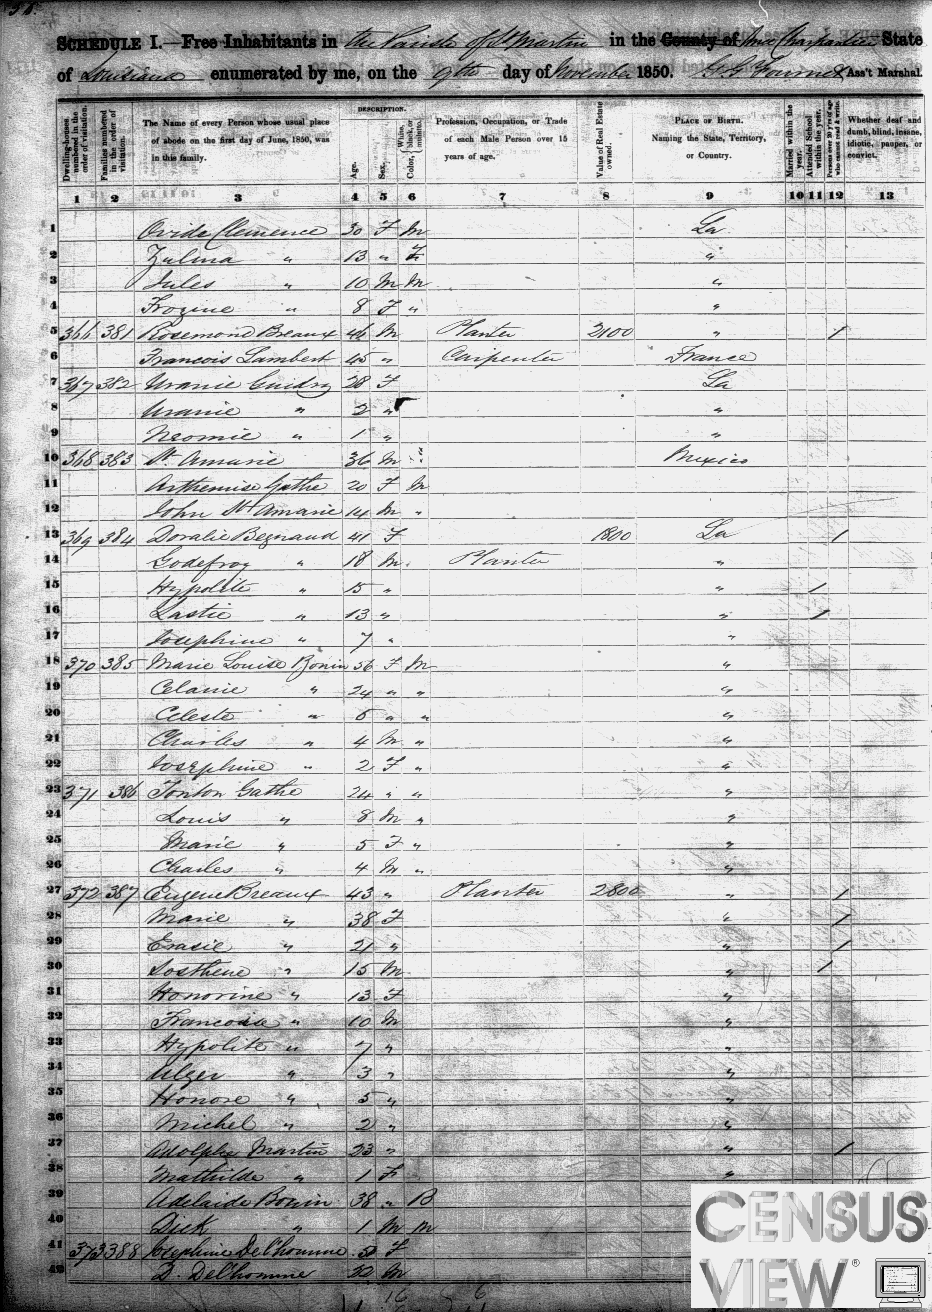 SCHEDULE I.—Free Inhabitants in the Parish of St Martin in the County of Charpentier State
of Louisiana enumerated by me, on the 9th day of November 1850. Ass't Marshal.
Dwelling-houses numbered in the order of visitation.
Families numbered in the order of visitation.
The Name of every Person whose usual place of abode on the first day of June, 1850, was in this family.
DESCRIPTION.
Age.
Sex.
Color, White, black or mulatto.
Profession, Occupation, or Trade of each Male Person over 15 years of age.
Value of Real Estate owned.
PLACE OF BIRTH. Naming the State, Territory, or Country.
Married within the year.
Attended School within the year.
Persons over 20 y'rs of age who cannot read & write.
Whether deaf and dumb, blind, insane, idiotic, pauper, or convict.
1 2 3 4 5 6 7 8 9 10 11 12 13
1 Ovide Clemence 30 F M La
2 Zulma " 13 " F "
3 Jules " 10 M M "
4 Frozine " 8 F " "
5 366 381 Rosemond Breaux 46 M Planter 2100 " /
6 Francois Lambert 45 " Carpenter France
7 367 382 Uranie Guidry 28 F La
8 Uranie " 2 " "
9 Neomie " 1 " "
10 368 383 St. Amarie 36 M Mexico
11 Arthemise Gathe 20 F M
12 John St Amarie 14 M "
13 369 384 Doralie Begnaud 41 F 1800 La /
14 Godefroy " 18 M Planter "
15 Hypolite " 15 " " /
16 Lastie " 13 " " /
17 Josephine " 7 " "
18 370 385 Marie Louise Bonin 56 F M "
19 Celanie " 24 " " "
20 Celeste " 6 " " "
21 Charles " 4 M " "
22 Josephine " 2 F " "
23 371 386 Tonton Gathe 24 " " "
24 Louis " 8 M " "
25 Marie " 5 F " "
26 Charles " 4 M " "
27 372 387 Eugene Breaux 43 " Planter 2800 " /
28 Marie " 38 F " /
29 Erasie " 21 " " /
30 Sosthene " 15 M " /
31 Honorine " 13 F "
32 Francois " 10 M "
33 Hypolite " 7 " "
34 Ulger " 3 " "
35 Honore " 5 " "
36 Michel " 2 " "
37 Adolphe Martin 23 " " /
38 Mathilde " 1 F "
39 Adelaide Bonin 38 " B
40 Dick " 1 M M
41 373 388 Josephine Delhomme F
42 D. Delhomme 32 M
CENSUS
VIEW ®